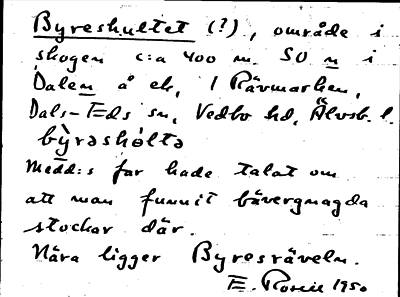 Byreshultet (?), område i
skogen c:a 400 m. SO n i
Dalen å ek, 1 Rävmarken,
Dals-Eds sn, Vedbo hd, Älvsb. l.
by̌rəshòltə
Medd:s far hade talat om
att man funnit bävergnagda
stockar där.
Nära ligger Byresräveln.
E. 1950